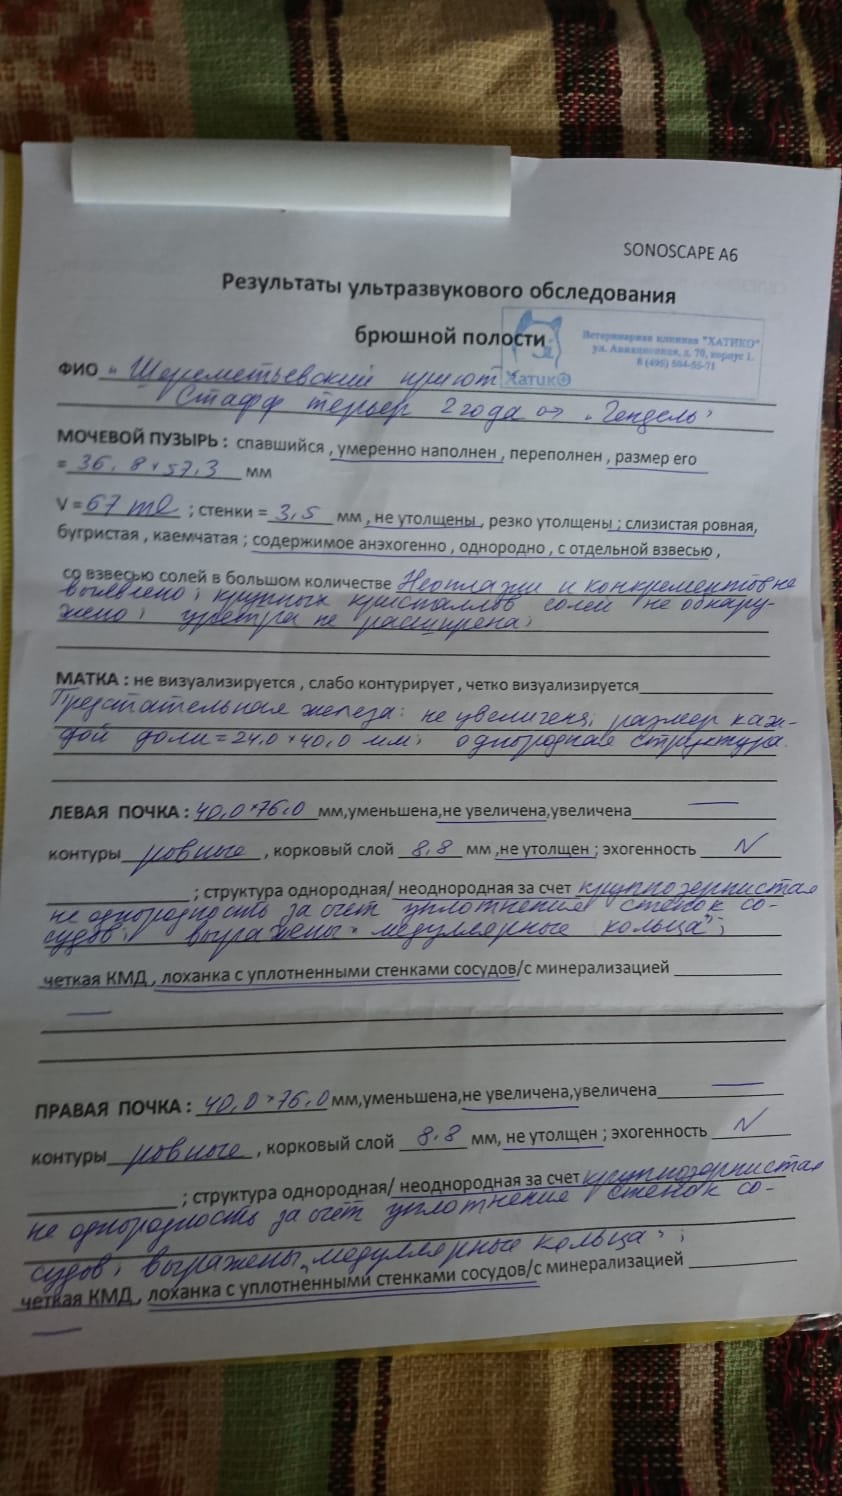 SONOSCAPE A6
Результаты ультразвукового обследования
брюшной полости
Ветеринарная клиника "ХАТИКО"
ул. Авиационная, д. 70, корпус 1.
8 (495) 504-55-71
Хатико
ФИО "Шереметьевский приют"
Стафф терьер 2 года ♂ "Гендель"
МОЧЕВОЙ ПУЗЫРЬ : спавшийся , умеренно наполнен , переполнен , размер его
= 36,8 × 57,3 мм
V = 67 ml ; стенки = 3,5 мм , не утолщены , резко утолщены ; слизистая ровная,
бугристая , каемчатая ; содержимое анэхогенно , однородно , с отдельной взвесью ,
со взвесью солей в большом количестве Неоплазии и конкрементов не
выявлено; крупных кристаллов солей не обнару-
жено; уретра не расширена;
МАТКА : не визуализируется , слабо контурирует , четко визуализируется
Предстательная железа: не увеличена; размер каж-
дой доли = 24,0 × 40,0 мм; однородная структура.
ЛЕВАЯ ПОЧКА : 40,0 × 76,0 мм,уменьшена,не увеличена,увеличена —
контуры ровные , корковый слой 8,8 мм ,не утолщен ; эхогенность N
; структура однородная/ неоднородная за счет крупнозернистая
не однородность за счет уплотнение стенок со-
судов; выражены "медуллярные кольца";
четкая КМД , лоханка с уплотненными стенками сосудов/с минерализацией
—
ПРАВАЯ ПОЧКА : 40,0 × 76,0 мм,уменьшена,не увеличена,увеличена —
контуры ровные , корковый слой 8.8 мм, не утолщен ; эхогенность N
; структура однородная/ неоднородная за счет крупнозернистая
не однородность за счёт уплотнение стенок со-
судов; выражены "медуллярные кольца";
четкая КМД , лоханка с уплотненными стенками сосудов/с минерализацией
—